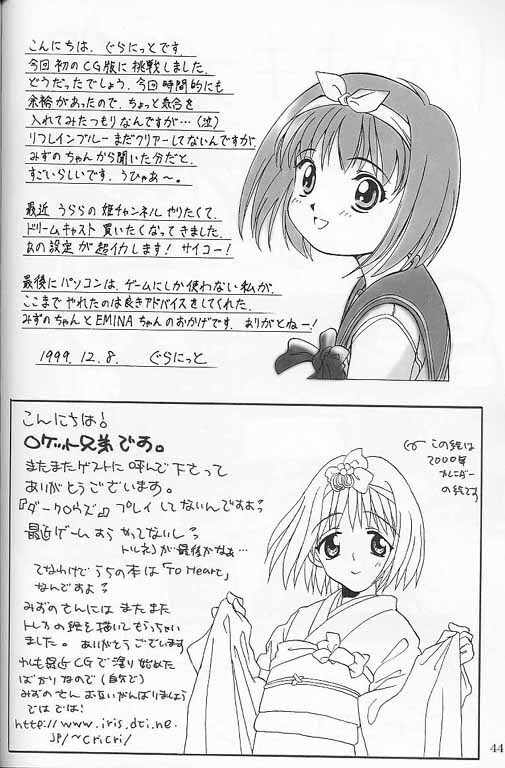 こんにちは、ぐらにっとです。
今回初のCG版に挑戦しました。
どうだったでしょう、今回時間的にも
余裕があったので、ちょっと気合を
入れてみたつもりなんですが…(泣)
リフレインブルーまだクリアーしてないんですが
みずのちゃんから聞いた分だと、
すごいらしいです、うひゃあ〜。
最近 うららの 姫チャンネル やりたくて、
ドリームキャスト 買いたくなってきました。
あの設定が超イカします! サイコー!
最後にパソコンは、ゲームにしか使わない私が、
ここまでやれたのは良きアドバイスをしてくれた、
みずのちゃんとEMINAちゃんのおかげです、ありがとねー!
1999.12.8. ぐらにっと
こんにちは!
ロケット兄弟です。
またまたゲストに呼んで下さって
ありがとうございます。
『ダーク〇らズ』プレイしてないんですよ?
最近ゲームすらやってないし?
トルネ)が最後かなぁ…
てなわけでうちの本は「To Heart」
なんですよ?
みずのさんには またまた
トレカの絵を描いてもらっちゃい
ました。ありがとうございます
われも最近CGで塗り始めた
ばかりなので(自分で)
みずのさん お互いがんばりましょう
では では!
http://www.iris.dti.ne.
jp/~cricri/
この絵は
2000年
カレンダー
の絵です
44